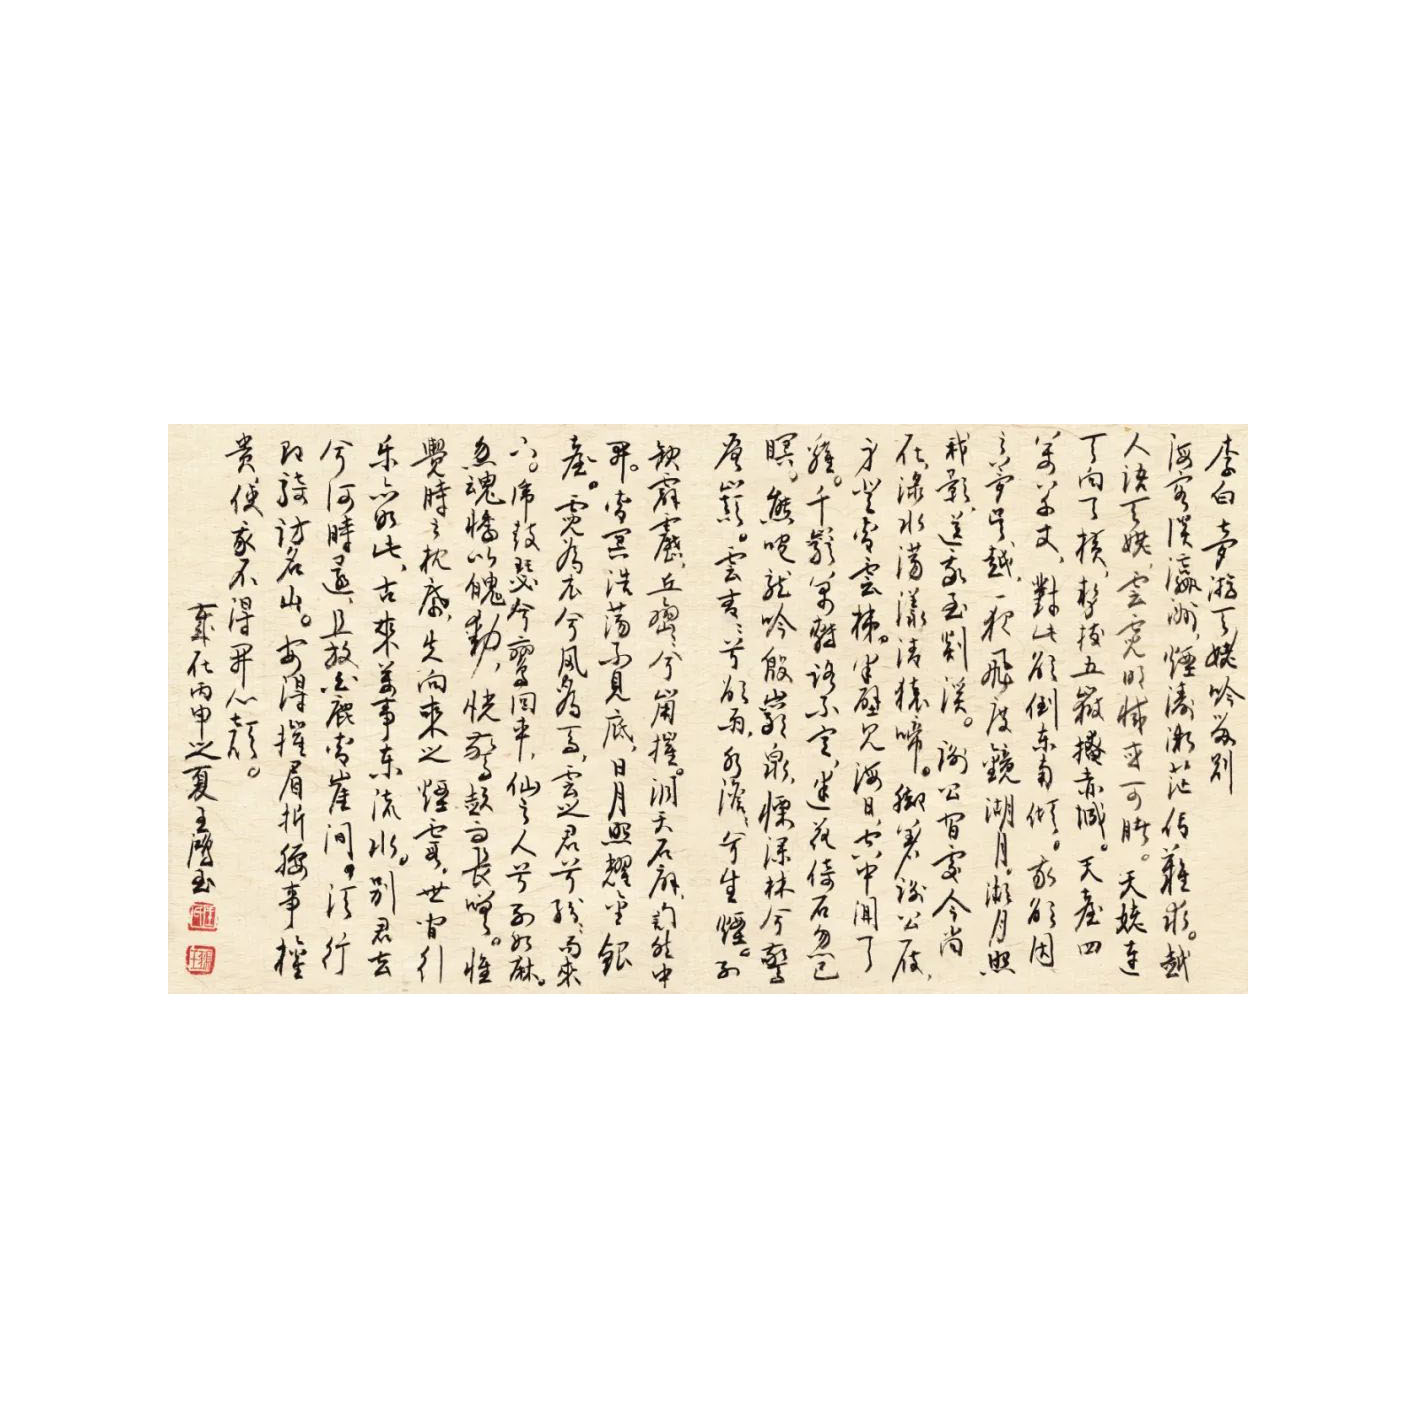 李白夢游天姥吟留別
海客談瀛洲煙濤微茫信難求。越
人語天姥，雲霓明滅或可睹。天姥連
天向天橫，勢拔五嶽掩赤城。天臺四
萬八千丈，對此欲倒东南傾。我欲因
之夢吳越，一夜飛度鏡湖月。湖月照
我影，送我至剡溪。謝公宿處今尚
在，淥水蕩漾清猿啼。腳著謝公屐，
身登青雲梯。半壁见海日，空中闻天
雞。千巖萬轉路不定，迷花倚石忽已
暝。熊咆龙吟殷巖泉，慄深林兮驚
層巔。雲青青兮欲雨，水澹澹兮生煙。列
缺霹靂，丘巒兮崩摧。洞天石扉，訇然中
開。青冥浩蕩不見底，日月照耀金銀
臺。霓為衣兮風為馬，雲之君兮紛紛而來
下。虎鼓瑟兮鸞回車，仙之人兮列如麻。
忽魂悸以魄動，恍驚起而長嗟。惟
覺時之枕席，失向來之煙霞。世间行
乐亦如此，古來萬事东流水。别君去
兮何時還，且放白鹿青崖间。須行
即骑访名山。安得摧眉折腰事權
贵，使我不得開心顏。
歲在丙申之夏王